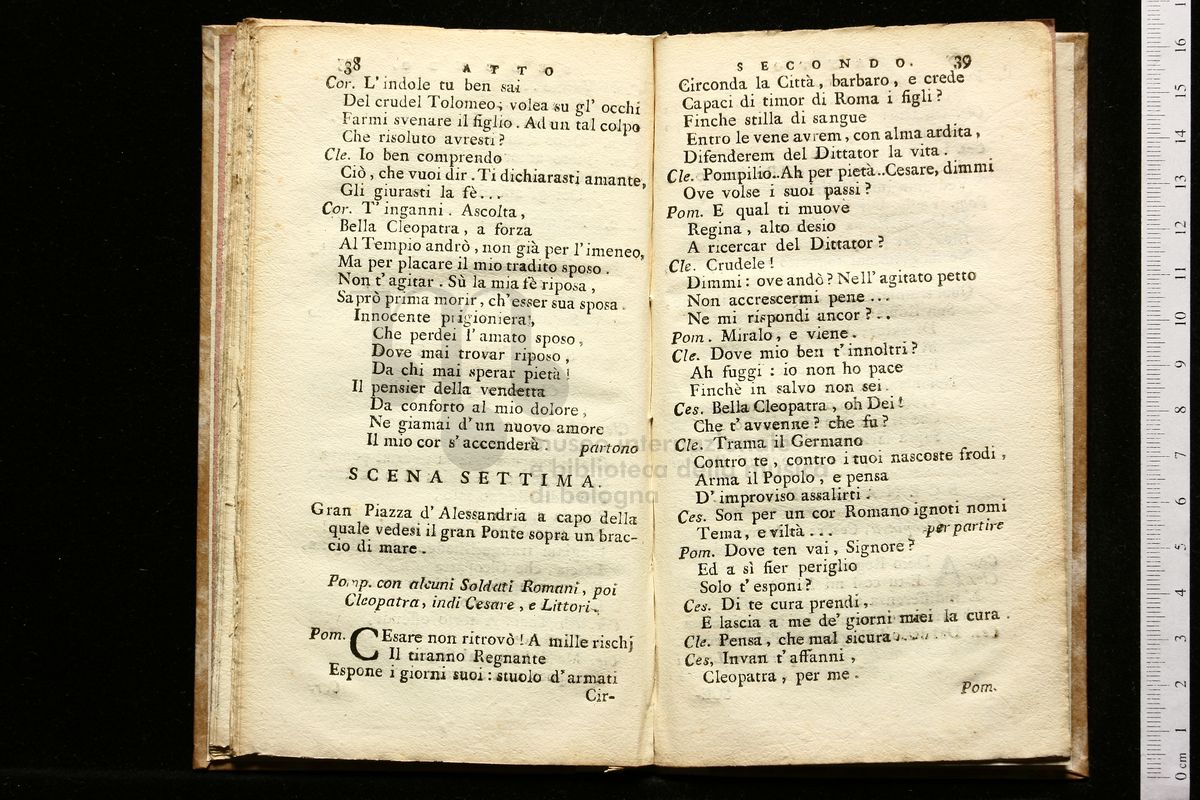 38 ATTO
Cor. L'indole tu ben sai
Del crudel Tolomeo, volea su gl' occhi
Farmi svenare il figlio. Ad un tal colpo
Che risoluto avresti?
Cle. Io ben comprendo
Ciò, che vuoi dir. Ti dichiarasti amante,
Gli giurasti la fè...
Cor. T'inganni. Ascolta,
Bella Cleopatra, a forza
Al Tempio andrò, non già per l'imeneo,
Ma per placare il mio tradito sposo.
Non t'agitar. Sù la mia fè riposa,
Saprò prima morir, ch'esser sua sposa.
Innocente prigioniera!,
Che perdei l'amato sposo,
Dove mai trovar riposo,
Da chi mai sperar pietà!
Il pensier della vendetta
Da conforto al mio dolore,
Ne giamai d'un nuovo amore
Il mio cor s'accenderà. partono
SCENA SETTIMA.
Gran Piazza d'Alessandria a capo della
quale vedesi il gran Ponte sopra un brac-
cio di mare.
Pomp. con alcuni Soldati Romani, poi
Cleopatra, indi Cesare, e Littori.
Pom. CEsare non ritrovò! A mille rischj
Il tiranno Regnante
Espone i giorni suoi: stuolo d'armati
Cir-
SECONDO. 39
Circonda la Città, barbaro, e crede
Capaci di timor di Roma i figli?
Finche stilla di sangue
Entro le vene avrem, con alma ardita,
Difenderem del Dittator la vita.
Cle. Pompilio..Ah per pietà..Cesare, dimmi
Ove volse i suoi passi?
Pom. E qual ti muove
Regina, alto desio
A ricercar del Dittator?
Cle. Crudele!
Dimmi: ove andò? Nell'agitato petto
Non accrescermi pene...
Ne mi rispondi ancor?..
Pom. Miralo, e viene.
Cle. Dove mio ben t'innoltri?
Ah fuggi: io non ho pace
Finchè in salvo non sei.
Ces. Bella Cleopatra, oh Dei!
Che t'avvenne? che fu?
Cle. Trama il Germano
Contro te, contro i tuoi nascoste frodi,
Arma il Popolo, e pensa
D'improviso assalirti.
Ces. Son per un cor Romano ignoti nomi
Tema, e viltà... per partire
Pom. Dove ten vai, Signore?
Ed a sì fier periglio
Solo t'esponi?
Ces. Di te cura prendi,
E lascia a me de' giorni miei la cura.
Cle. Pensa, che mal sicura....
Ces, Invan t'affanni,
Cleopatra, per me.
Pom.
museo internazionale
e biblioteca della musica
di bologna
0 cm 1 2 3 4 5 6 7 8 9 10 11 12 13 14 15 16